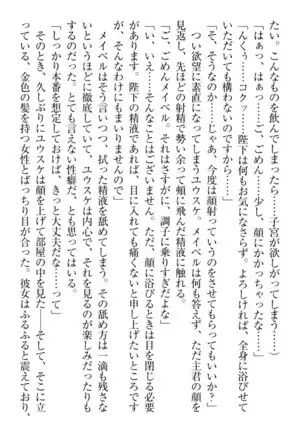 たい。こんなものを飲んでしまったら……子宮が欲しがってしまって……)
「はぁっ、はぁっ……ご、ごめん……少し、顔にかかっちゃったな……」
「んくぅっ……コクッ……陛下は何もお気になさらず。よろしければ、全身に浴びせて
いただいても構わないのですから……」
「そ、そうなのか……じゃあ、今度は顔射っていうのをさせてもらってもいいか?」
つい欲望に素直になってしまうユウスケ。メイベルは何も答えず、ただ主君の顔を
見返し、先ほどの射精で勢い余って頬に飛んだ精液に触れる。
「ご、ごめんメイベル。それはさすがに、調子に乗りすぎだよな」
「い、いえ……そんなことはございません。ただ、顔に浴びるときは目を閉じる必要
があります。陛下の精液であれば、目に入れても痛くないと申し上げたいところです
が、そんなわけにもまいりませんので」
メイベルはそう言いつつ、拭った精液を舐めてしまう。その舐め方は一滴も残さな
いというほどに徹底していて、ユウスケは内心で、それを見るのが楽しみだったりも
するのだった。とても言えない性癖だ、とも思っている。
「しっかり本番を想定しておけば、きっと大丈夫だな……って」
そのとき、久しぶりにユウスケは顔を上げて部屋の中を見た――そして、そこに立
っている、金色の髪を持つ女性とばっちり目が合った。彼女はふるふると震えており、